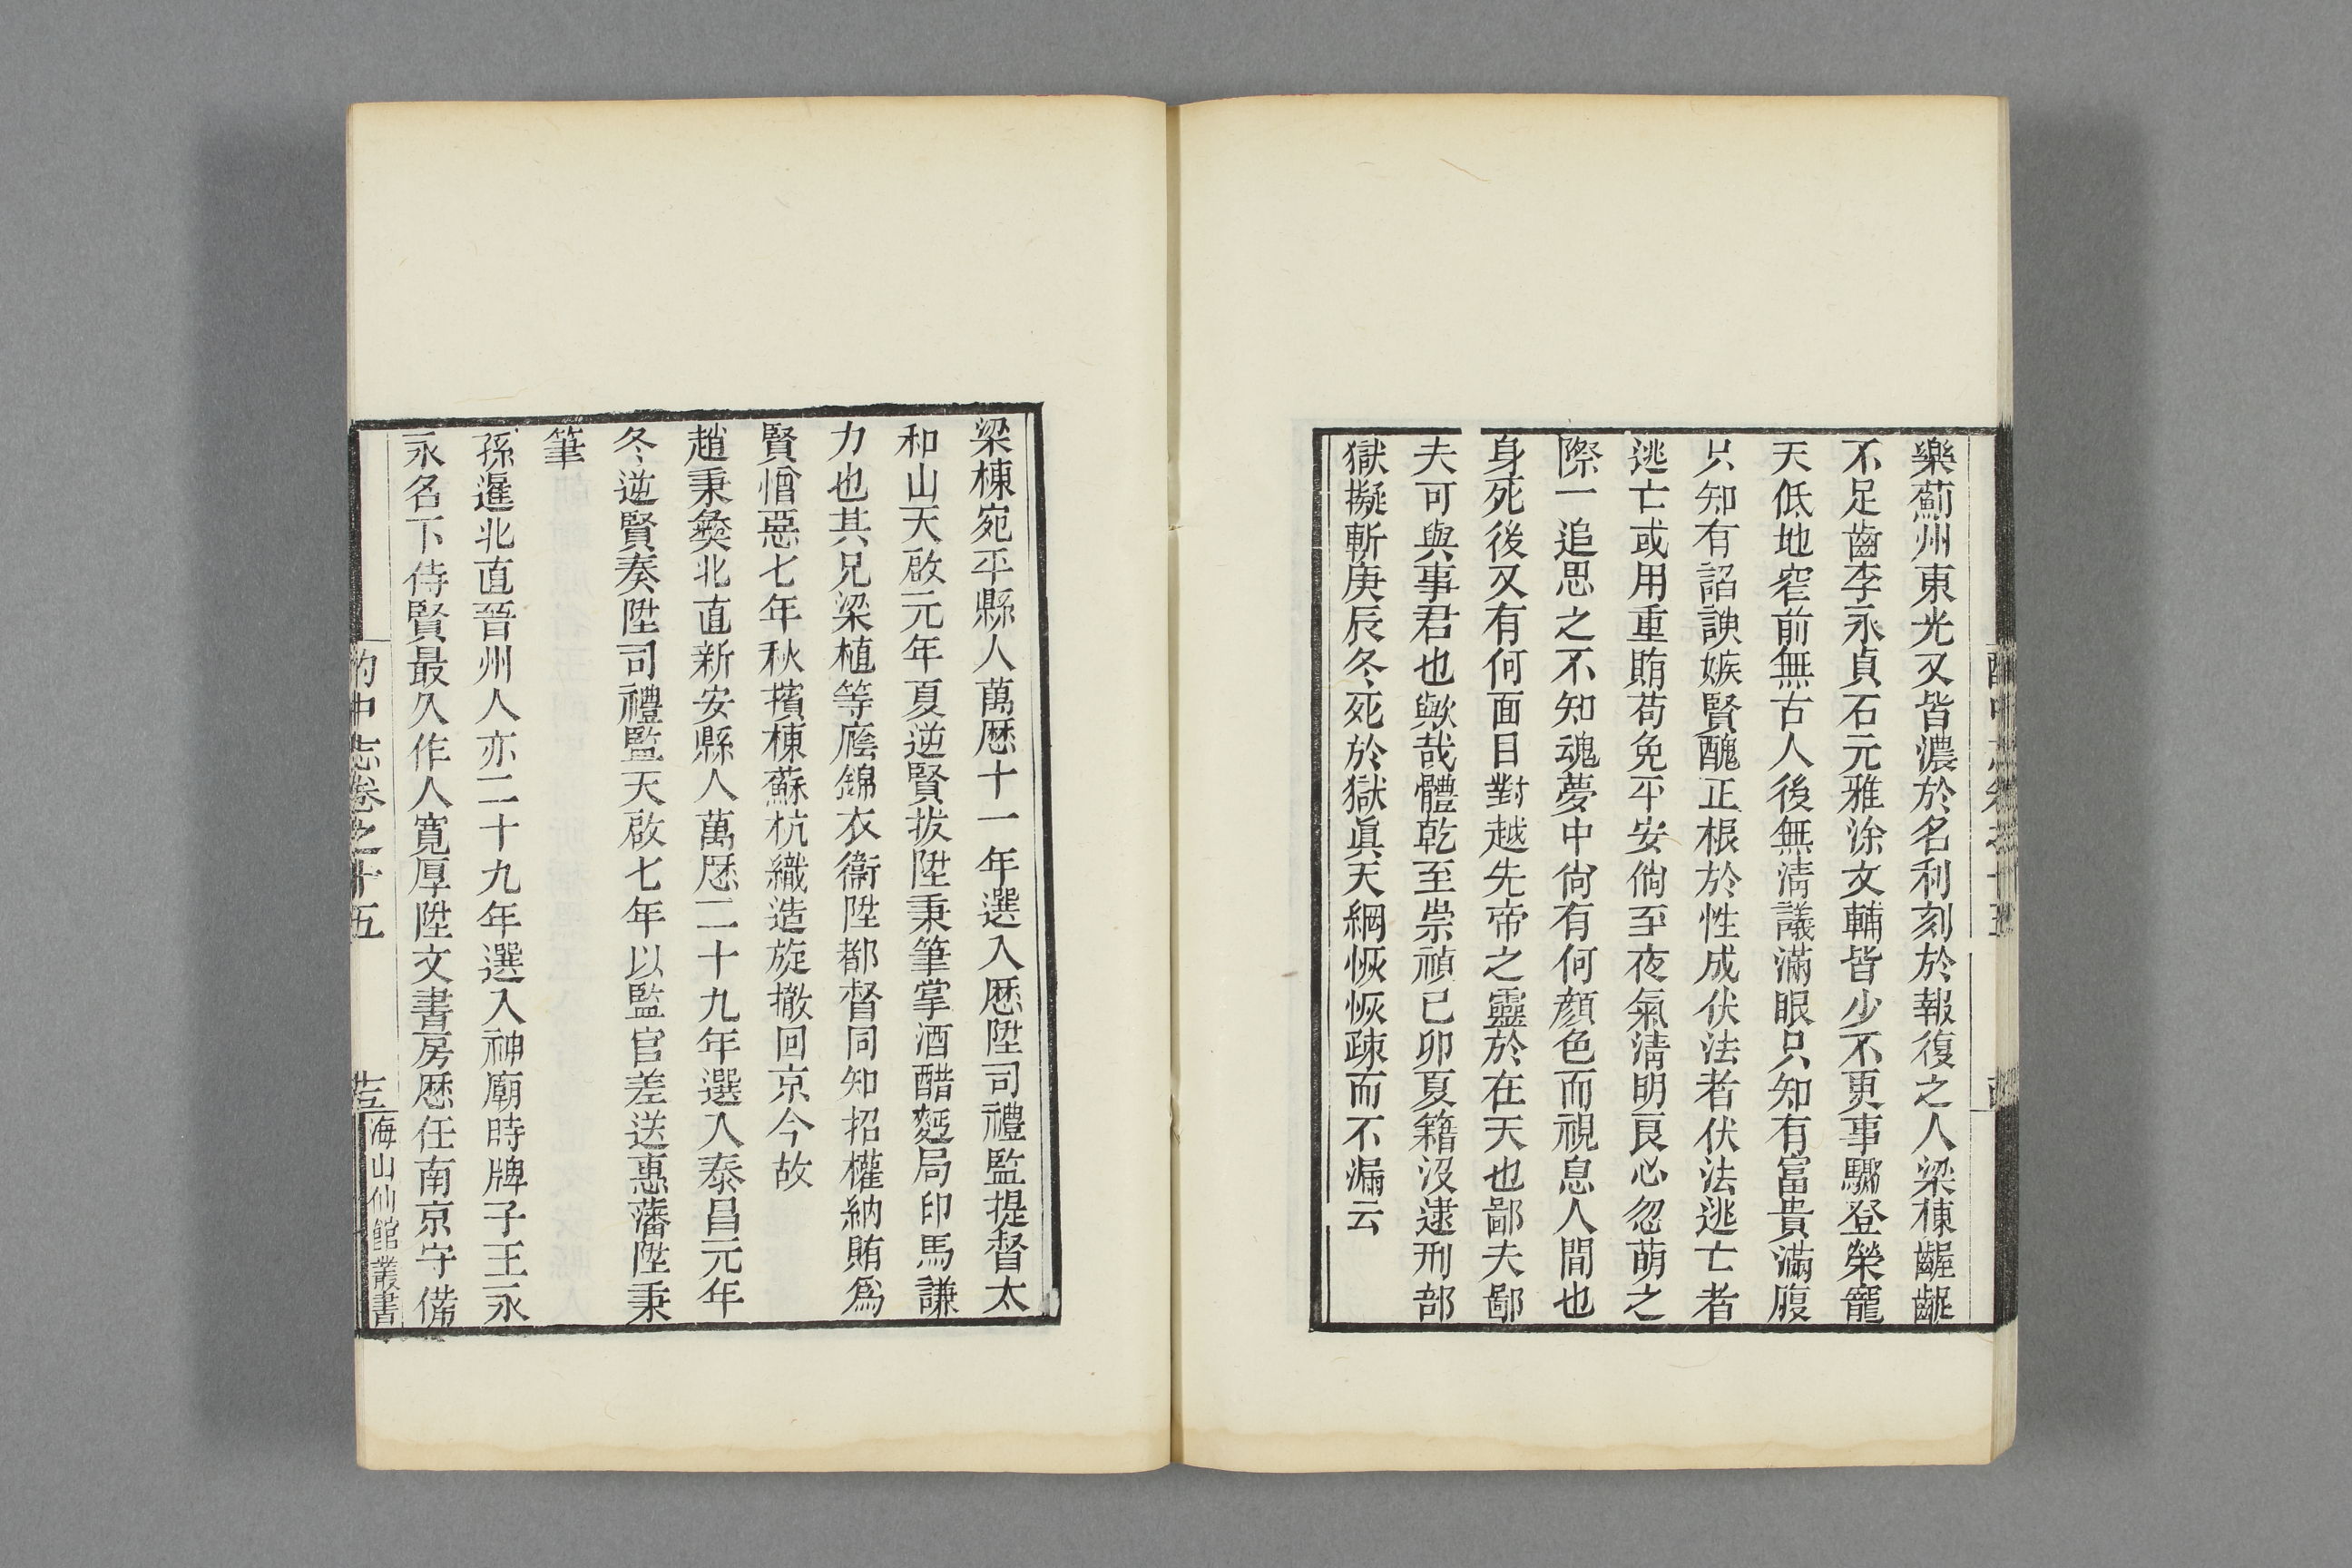 樂薊州東光又皆濃於名利刻於報復之人梁棟齷齪
不足齒李永貞石元雅涂文輔皆少不更事驟登榮寵
天低地窄前無古人後無清議滿眼只知有富貴滿腹
只知有諂諛嫉賢醜正根於性成伏法者伏法逃亡者
逃亡或用重賄苟免平安倘至夜氣清明良心忽萌之
際一追思之不知魂夢中尙有何顏色而視息人間也
身死後又有何面目對越先帝之靈於在天也鄙夫鄙
夫可與事君也歟哉體乾至崇禎己卯夏籍沒逮刑部
獄擬斬庚辰冬死於獄眞天網恢恢疎而不漏云
梁棟宛平縣人萬歷十一年選入歷陞司禮監提督太
和山天啟元年夏逆賢拔陞秉筆掌酒醋麪局印馬謙
力也其兄梁植等廕錦衣衞陞都督同知招權納賄爲
賢憎惡七年秋擯棟蘇杭織造旋撤回京今故
趙秉彝北直新安縣人萬歷二十九年選入泰昌元年
冬逆賢奏陞司禮監天啟七年以監官差送惠藩陞秉
筆
孫暹北直晉州人亦二十九年選入神廟時牌子王永
永名下侍賢最久作人寬厚陞文書房歷任南京守備
酌中志卷之十五
海山仙館叢書